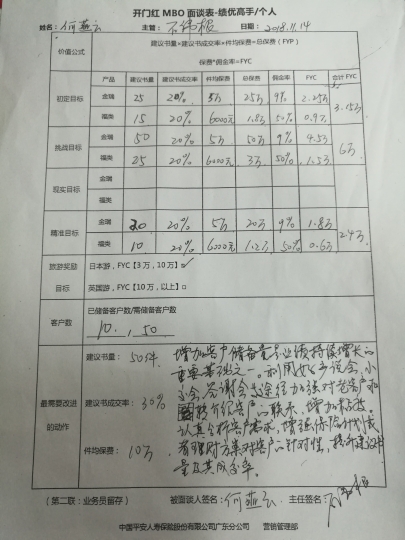 开门红 MBO 面谈表-绩优高手/个人
姓名：何燕云 主管： 日期：2018.11.14
价值公式 建议书量×建议书成交率×件均保费=总保费（FYP）
保费*佣金率=FYC
产品 建议书量 建议书成交率 件均保费 总保费 佣金率 FYC 合计 FYC
初定目标 金瑞 25 20% 5万 25万 9% 2.25万 3.15万
福类 15 20% 6000元 1.8万 50% 0.9万
挑战目标 金瑞 50 20% 5万 50万 9% 4.5万 6万
福类 25 20% 6000元 3万 50% 1.5万
现实目标 金瑞
福类
精准目标 金瑞 20 20% 5万 20万 9% 1.8万 2.4万
福类 10 20% 6000元 1.2万 50% 0.6万
旅游奖励目标 日本游，FYC【3 万，10 万）□✓
英国游，FYC【10 万，以上）□
客户数 已储备客户数/需储备客户数
10，50
最需要改进的动作
建议书量：50件
建议书成交率：30%
件均保费：10万
增加客户储备量是业绩持续增长的
重要基础之一。利用好产说会、小
会、答谢会等途径加强对老客户和
转介绍客户的联系，增加
认真分析客户需求，增强保险计划
对客户的针对性，提升建议书
量及其成交率。
（第二联：业务员留存） 被面谈人签名：何燕云 主任签名：
中国平安人寿保险股份有限公司广东分公司 营销管理部